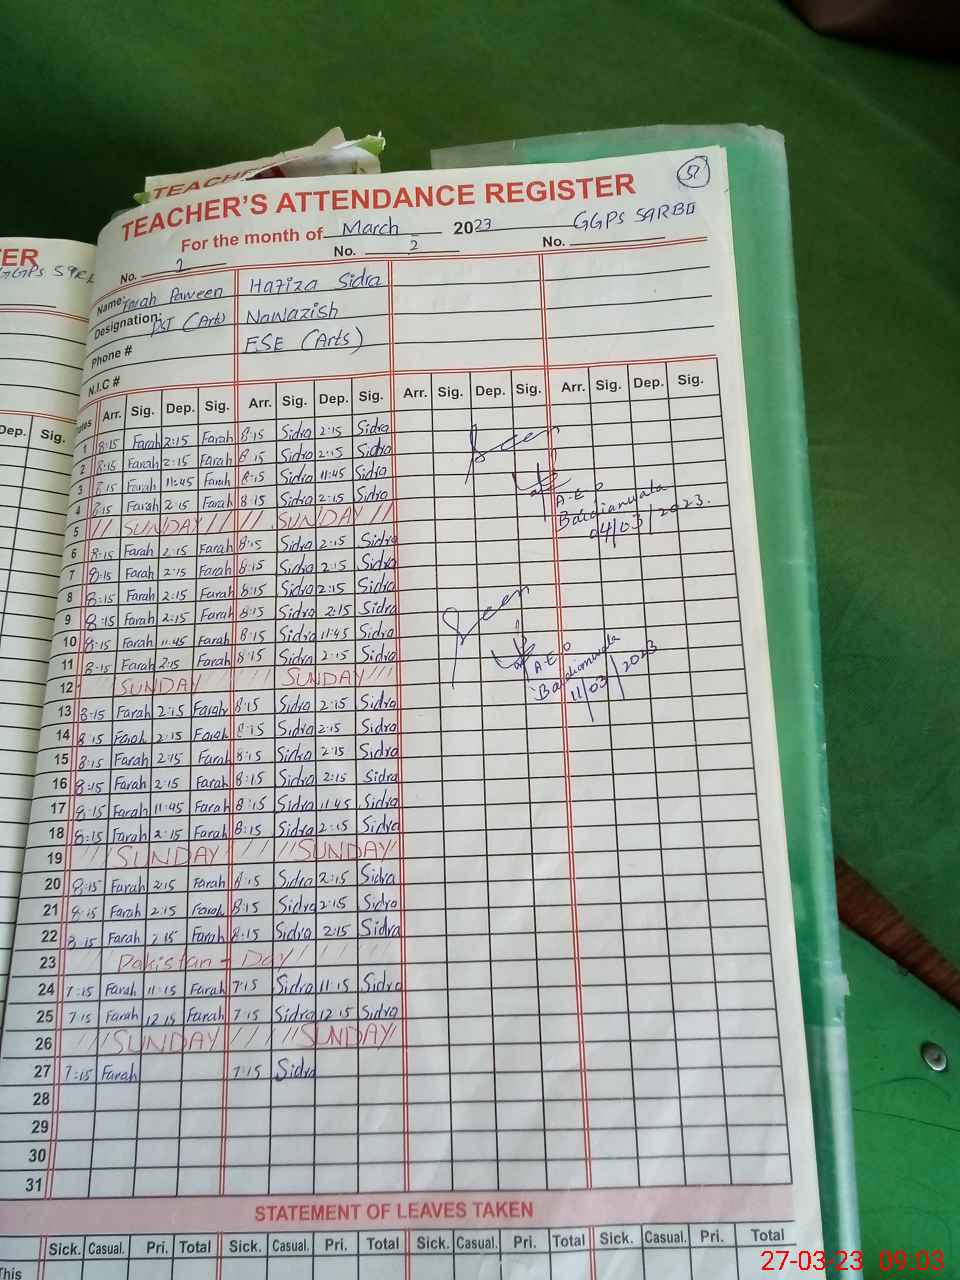 TEACHER
TEACHER'S ATTENDANCE REGISTER
51
For the month of March 2023 GGPS 59RBII
No. 1 No. 2 No.
Name: Farah Parveen Hafiza Sidra
Designation: PST (Arts) Nawazish
Phone # ESE (Arts)
N.I.C #
Dates Arr. Sig. Dep. Sig. Arr. Sig. Dep. Sig. Arr. Sig. Dep. Sig. Arr. Sig. Dep. Sig.
1 8:15 Farah 2:15 Farah 8:15 Sidra 2:15 Sidra
2 8:15 Farah 2:15 Farah 8:15 Sidra 2:15 Sidra
3 8:15 Farah 11:45 Farah 8:15 Sidra 11:45 Sidra
4 8:15 Farah 2:15 Farah 8:15 Sidra 2:15 Sidra
5 SUNDAY SUNDAY
6 8:15 Farah 2:15 Farah 8:15 Sidra 2:15 Sidra
7 8:15 Farah 2:15 Farah 8:15 Sidra 2:15 Sidra
8 8:15 Farah 2:15 Farah 8:15 Sidra 2:15 Sidra
9 8:15 Farah 2:15 Farah 8:15 Sidra 2:15 Sidra
10 8:15 Farah 11:45 Farah 8:15 Sidra 11:45 Sidra
11 8:15 Farah 2:15 Farah 8:15 Sidra 2:15 Sidra
12 SUNDAY SUNDAY
13 8:15 Farah 2:15 Farah 8:15 Sidra 2:15 Sidra
14 8:15 Farah 2:15 Farah 8:15 Sidra 2:15 Sidra
15 8:15 Farah 2:15 Farah 8:15 Sidra 2:15 Sidra
16 8:15 Farah 2:15 Farah 8:15 Sidra 2:15 Sidra
17 8:15 Farah 11:45 Farah 8:15 Sidra 11:45 Sidra
18 8:15 Farah 2:15 Farah 8:15 Sidra 2:15 Sidra
19 SUNDAY SUNDAY
20 8:15 Farah 2:15 Farah 8:15 Sidra 2:15 Sidra
21 8:15 Farah 2:15 Farah 8:15 Sidra 2:15 Sidra
22 8:15 Farah 2:15 Farah 8:15 Sidra 2:15 Sidra
23 Pakistan - Day
24 7:15 Farah 11:15 Farah 7:15 Sidra 11:15 Sidra
25 7:15 Farah 12:15 Farah 7:15 Sidra 12:15 Sidra
26 SUNDAY SUNDAY
27 7:15 Farah 7:15 Sidra
28
29
30
31
Seen
A.E.O
Baldianwala
04/03/2023.
Seen
A.E.O
Baldianwala
11/03/2023
STATEMENT OF LEAVES TAKEN
Sick. Casual. Pri. Total Sick. Casual. Pri. Total Sick. Casual. Pri. Total Sick. Casual. Pri. Total
This
ER
GGPS 59R
Dep. Sig.
27-03-23 09:03